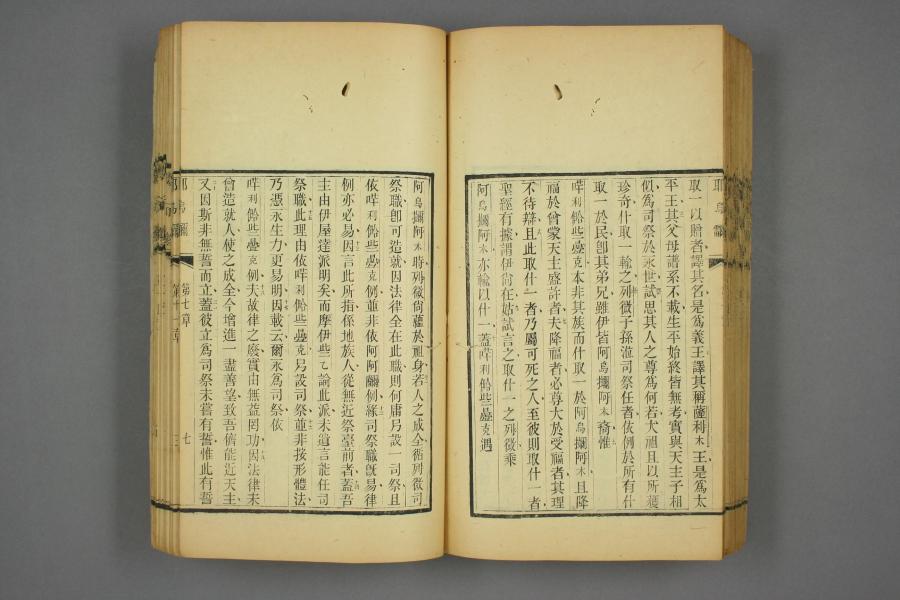 取一以贈者譯其名是為義王譯其稱薩利木王是為太
平王其父母譜系不載生平始終皆無考實與天主子相
似為司祭於永世試思其人之尊為何若大祖且以所獲
珍奇什取一輸之列微子孫涖司祭任者依例於所有什
取一於民卽其弟兄雖伊皆阿烏攔阿木裔惟
嘩利餙些疊克本非其族而什取一於阿烏攔阿木且降
福於曾蒙天主盛許者夫降福者必尊大於受福者其理
不待辯且此取什一者乃屬可死之人至彼則取什一者
聖經有據謂伊尙在姑試言之取什一之列微乘
阿烏攔阿木亦輸以什一蓋嘩利餙些疊克遇
阿烏攔阿木時列微尙蘊於祖身若人之成全循列微司
祭職卽可造就因法律全在此職則何庸另設一司祭且
依嘩利餙些疊克例並非依阿阿爾例緣司祭職旣易律
例亦必易因言此所指係他族人從無近祭臺前者蓋吾
主由伊屋達派明矣而摩伊些乙論此派未遺言能任司
祭職此理由依嘩利餙些疊克另設司祭並非按形體法
乃憑永生力更易明因載云爾永為司祭依
嘩利餙些疊克例夫故律之廢實由無益罔功因法律未
曾造就人使之成全今增進一盡善望致吾儕能近天主
又因斯非無誓而立蓋彼立為司祭未嘗有誓惟此有誓
第七章
七